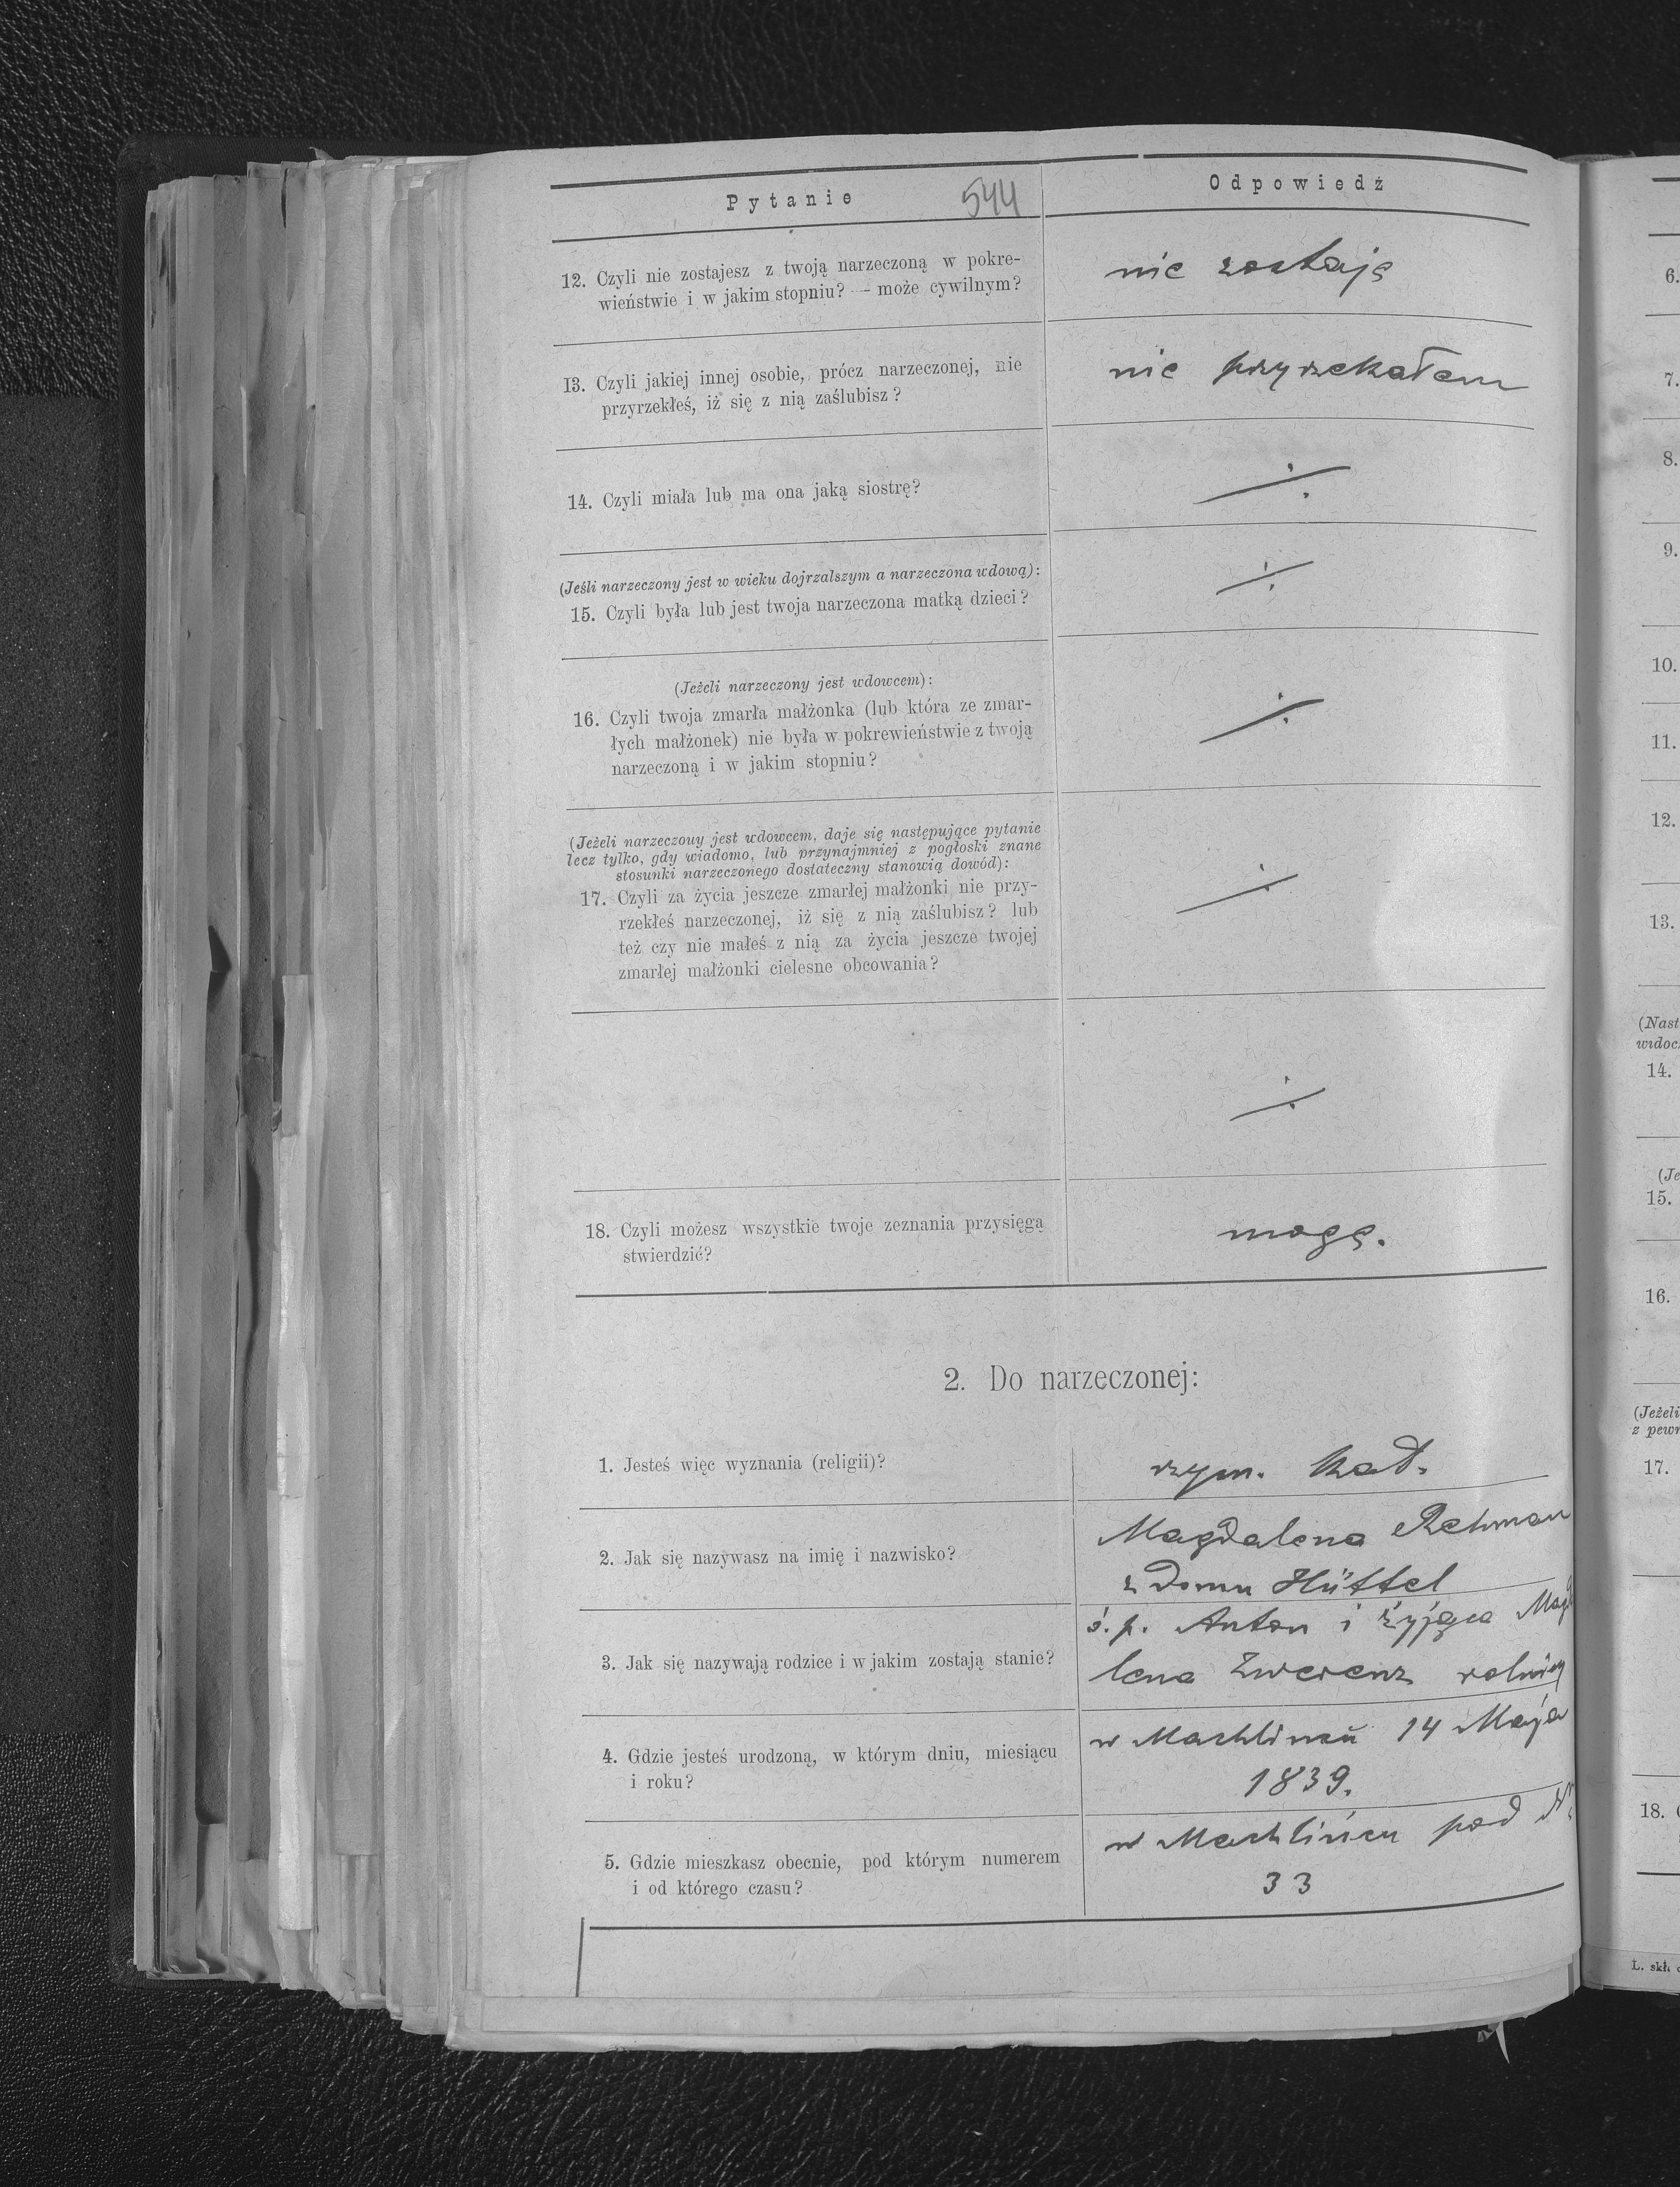 Pytanie 544 Odpowiedź
12. Czyli nie zostajesz z twoją narzeczoną w pokre-
wieństwie i w jakim stopniu? — może cywilnym?
nie zostaję
13. Czyli jakiej innej osobie, prócz narzeczonej, nie
przyrzekłeś, iż się z nią zaślubisz?
nie przyrzekałem
14. Czyli miała lub ma ona jaką siostrę?
÷
(Jeśli narzeczony jest w wieku dojrzalszym a narzeczona wdową):
15. Czyli była lub jest twoja narzeczona matką dzieci?
÷
(Jeżeli narzeczony jest wdowcem):
16. Czyli twoja zmarła małżonka (lub która ze zmar-
łych małżonek) nie była w pokrewieństwie z twoją
narzeczoną i w jakim stopniu?
÷
(Jeżeli narzeczony jest wdowcem, daje się następujące pytanie
lecz tylko, gdy wiadomo, lub przynajmniej z pogłoski znane
stosunki narzeczonego dostateczny stanowią dowód):
17. Czyli za życia jeszcze zmarłej małżonki nie przy-
rzekłeś narzeczonej, iż się z nią zaślubisz? lub
też czy nie małeś z nią za życia jeszcze twojej
zmarłej małżonki cielesne obcowania?
÷
÷
18. Czyli możesz wszystkie twoje zeznania przysięgą
stwierdzić?
mogę.
2. Do narzeczonej:
1. Jesteś więc wyznania (religii)?
rzym. kat.
2. Jak się nazywasz na imię i nazwisko?
Magdalena Rehman
z domu Hüttel
3. Jak się nazywają rodzice i w jakim zostają stanie?
ś. p. Anton i żyjąca Magd
lena Zwerenz rolnicy
4. Gdzie jesteś urodzoną, w którym dniu, miesiącu
i roku?
w Machlińcu 14 Maja
1839.
5. Gdzie mieszkasz obecnie, pod którym numerem
i od którego czasu?
w Machlińcu pod
33
6.
7.
8.
9.
10.
11.
12.
13.
(Nast
widoc
14.
(Je
15.
16.
(Jeżeli
z pewn
17.
18.
L. skł.